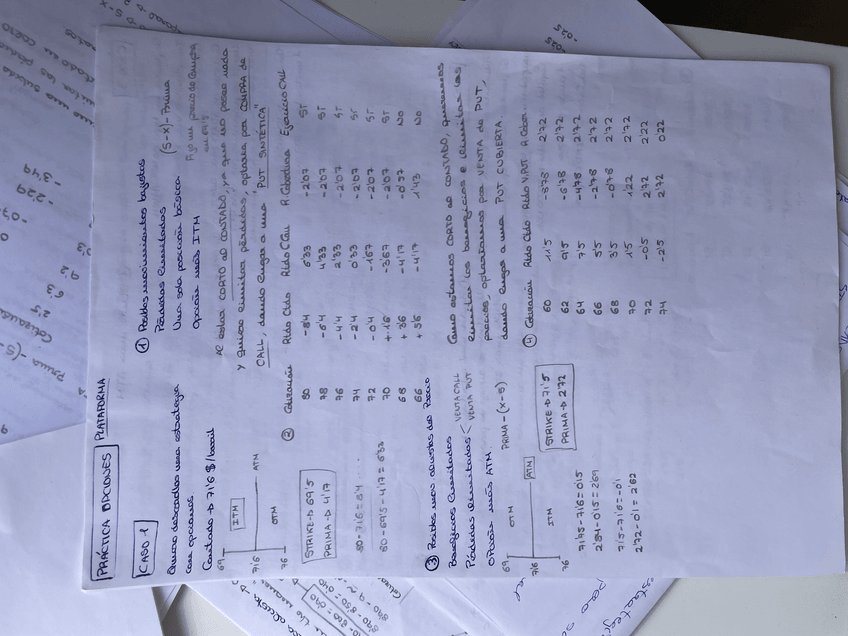 PRÁCTICA OPCIONES PLATAFORMA
CASO 1
Quiero desarrollar una estrategia
con opciones
Contado → 71'6 $/barril
69
71'6
76
ITM
ATM
OTM
① Posibles movimientos bajistas
Pérdidas limitadas
Una sola posición básica
opción más ITM
(S-X)-Prima
Al estar CORTO de CONTADO, ya que no poseo nada
y quiero limitar pérdidas, optaría por COMPRA de
CALL, dando lugar a una "PUT SINTÉTICA"
STRIKE → 69'5
PRIMA → 4'17
80-71'6 = 8'4 ....
80-69'5-4'17 = 6'33
② Cotización Rtdo Ctdo Rtdo C'Call R. Cobertura Ejercicio Call
80 -8'4 6'33 -2'07 SI
78 -6'4 4'33 -2'07 SI
76 -4'4 2'33 -2'07 SI
74 -2'4 0'33 -2'07 SI
72 -0'4 -1'67 -2'07 SI
70 +1'6 -3'67 -2'07 SI
68 +3'6 -4'17 -0'57 NO
66 +5'6 -4'17 1'43 NO
③ Posibles mov alcistas del Precio
Beneficios limitados
Pérdidas limitadas < VENTA CALL
VENTA PUT
opción más ATM.
69
71'6
76
OTM
ATM
ITM
PRIMA-(X-S)
STRIKE → 71'5
PRIMA → 2'72
71'75-71'6 = 0'15
2'84-0'15 = 2'69
71'5-71'6 = -0'1
2'72-0'1 = 2'62
Como estamos CORTO de CONTADO, queremos
limitar los beneficios e limitar los
precios, optaríamos por VENTA de PUT,
dando lugar a una PUT CUBIERTA.
④ Cotización Rtdo Ctdo Rtdo V.PUT R. Cober
60 11'5 -8'78 2'72
62 9'5 -6'78 2'72
64 7'5 -4'78 2'72
66 5'5 -2'78 2'72
68 3'5 -0'78 2'72
70 1'5 1'22 2'72
72 -0'5 2'72 2'22
74 -2'5 2'72 0'22